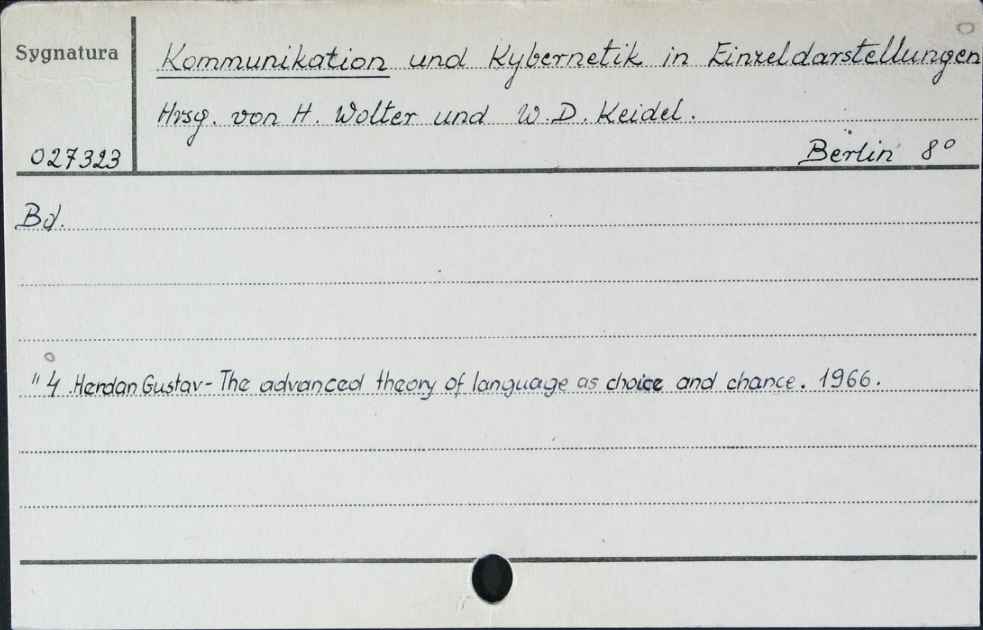 Sygnatura
Kommunikation und Kybernetik in Einzeldarstellungen
Hrsg. von H. Wolter und W. D. Keidel.
027323
Berlin 8°
Bd.
" 4 Herdan Gustav - The advanced theory of language as choice and chance. 1966.